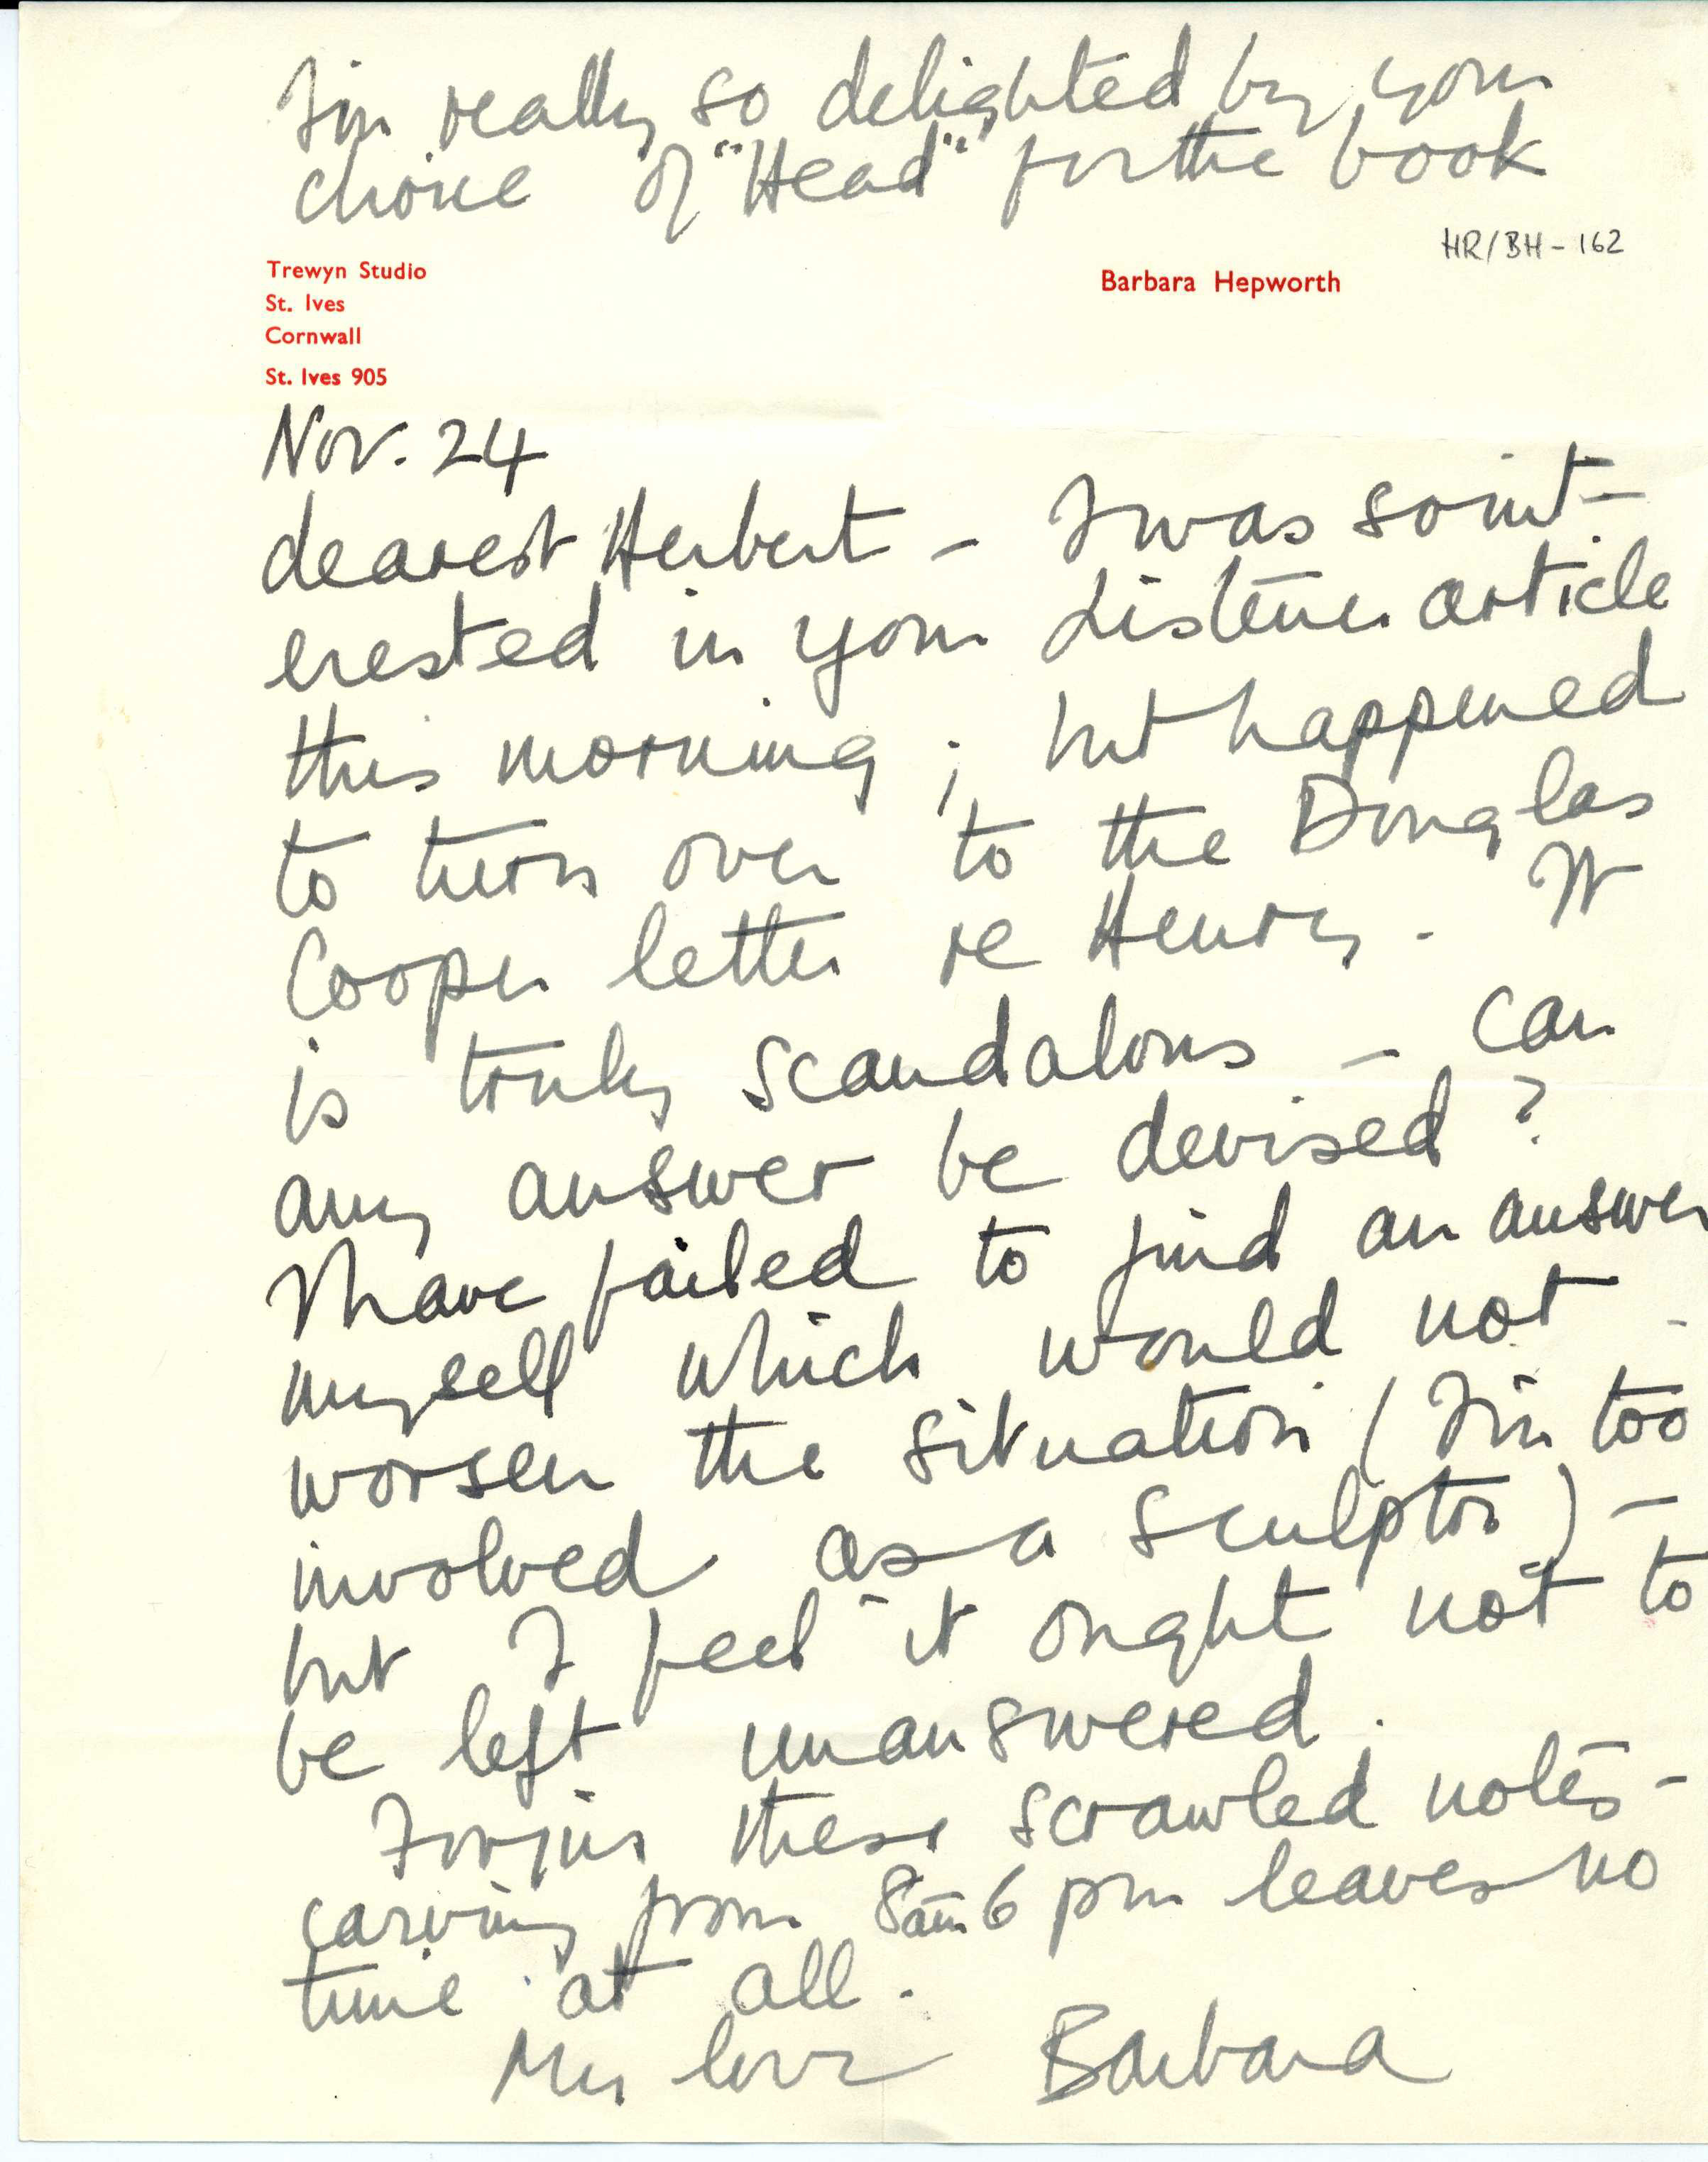 I'm really so delighted by your
choice of "Head" for the book
HR/BH-162
Trewyn Studio
St. Ives
Cornwall
St. Ives 905
Barbara Hepworth
Nov. 24
dearest Herbert - I was so int-
erested in your Listener article
this morning; but happened
to turn over to the Douglas
Cooper letter re Henry. It
is truly scandalous - can
any answer be devised?
I have failed to find an answer
myself which would not
worsen the situation (I'm too
involved as a sculptor) -
but I feel it ought not to
be left unanswered.
Forgive these scrawled notes -
carving from 8am 6 pm leaves no
time at all.
My love Barbara